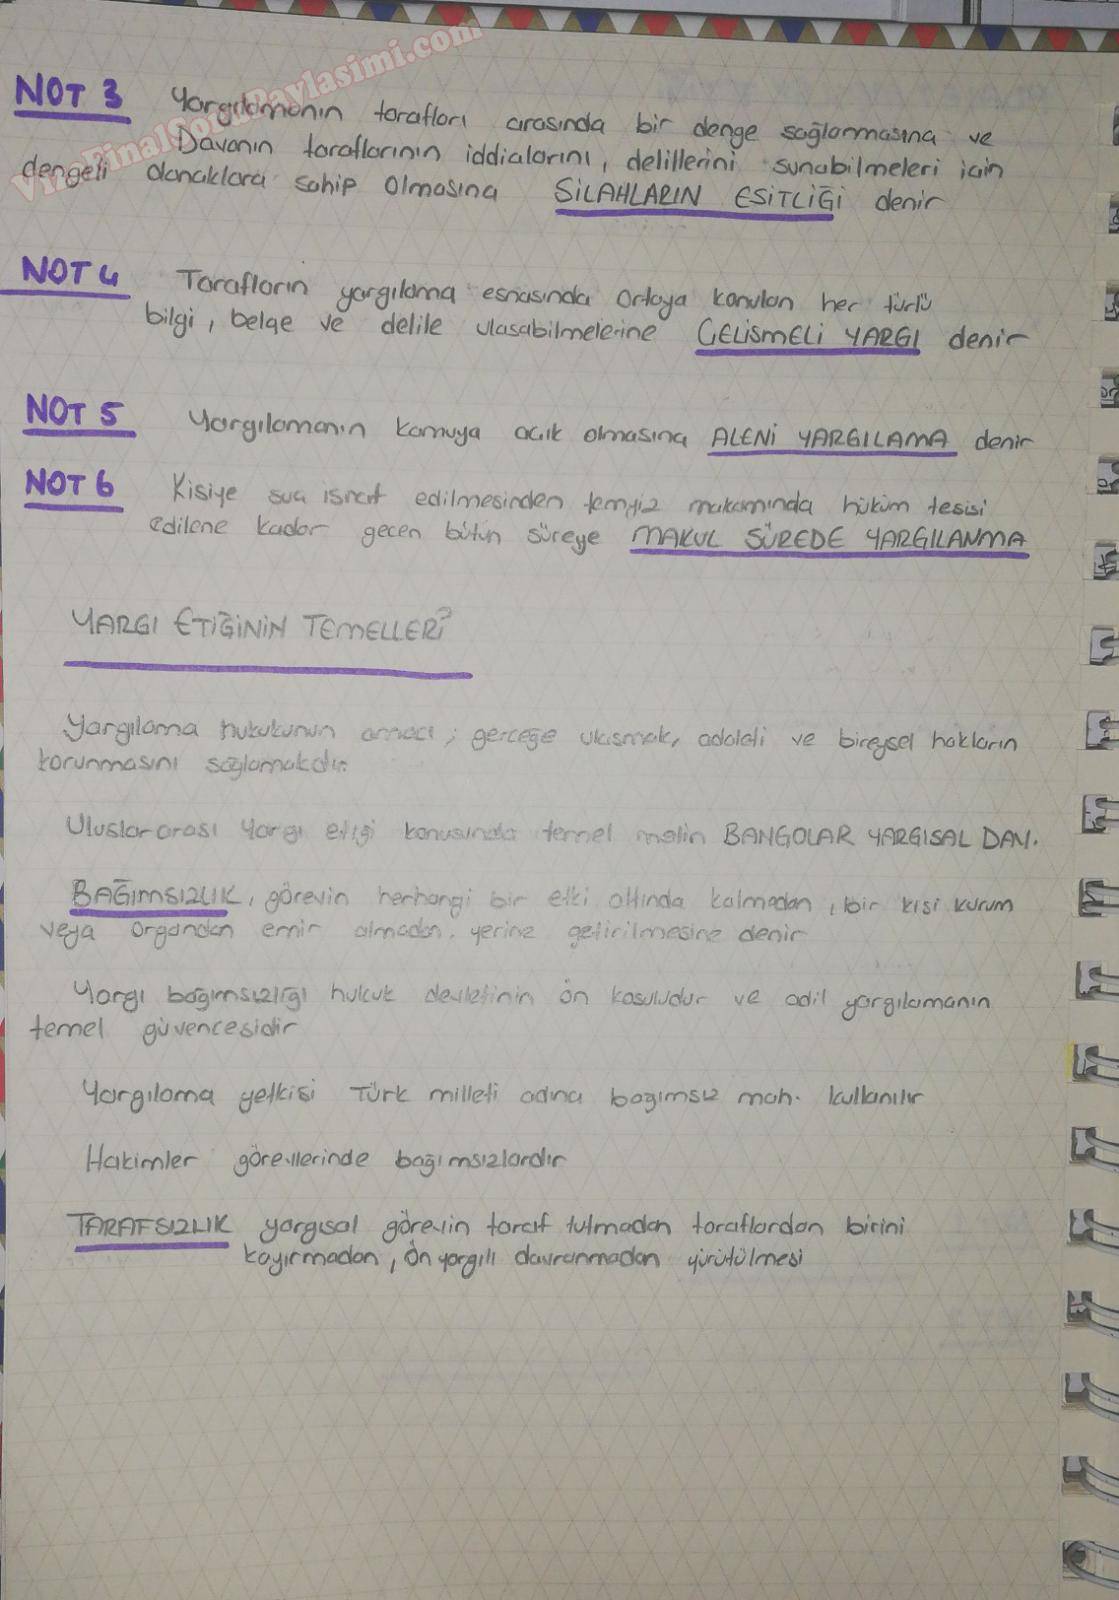 VizeFinalSoruPaylasimi.com
NOT 3 Yargılamanın tarafları arasında bir denge sağlanmasına ve
Davanın taraflarının iddialarını, delillerini sunabilmeleri için
dengeli olanaklara sahip olmasına SİLAHLARIN ESİTLİĞİ denir
NOT 4 Tarafların yargılama esnasında ortaya konulan her türlü
bilgi, belge ve delile ulasabilmelerine ÇELİSMELİ YARGI denir
NOT 5 Yargılamanın kamuya acık olmasına ALENİ YARGILAMA denir
NOT 6 Kisiye sua isnat edilmesinden temyiz makamında hüküm tesisi
edilene kadar gecen bütün süreye MAKUL SÜREDE YARGILANMA
YARGI ETİĞİNİN TEMELLERİ?
Yargılama hukukunun amacı; gerceğe ulasmak, adaleti ve bireysel hakların
korunmasını sağlamakdır.
Uluslararası Yargı etiği konusunda temel metin BANGOLAR YARGISAL DAV.
BAĞIMSIZLIK, görevin herhangi bir etki altında kalmadan, bir kisi kurum
veya organdan emir almadan. yerine getirilmesine denir
Yargı bağımsızlığı hukuk devletinin ön kosuludur ve adil yargılamanın
temel güvencesidir
Yargılama yetkisi Türk milleti adına bağımsız mah. kullanılır
Hakimler görevlerinde bağımsızlardır
TARAFSIZLIK yargısal görevin taraf tutmadan taraflardan birini
kayırmadan, ön yargılı davranmadan yürütülmesi